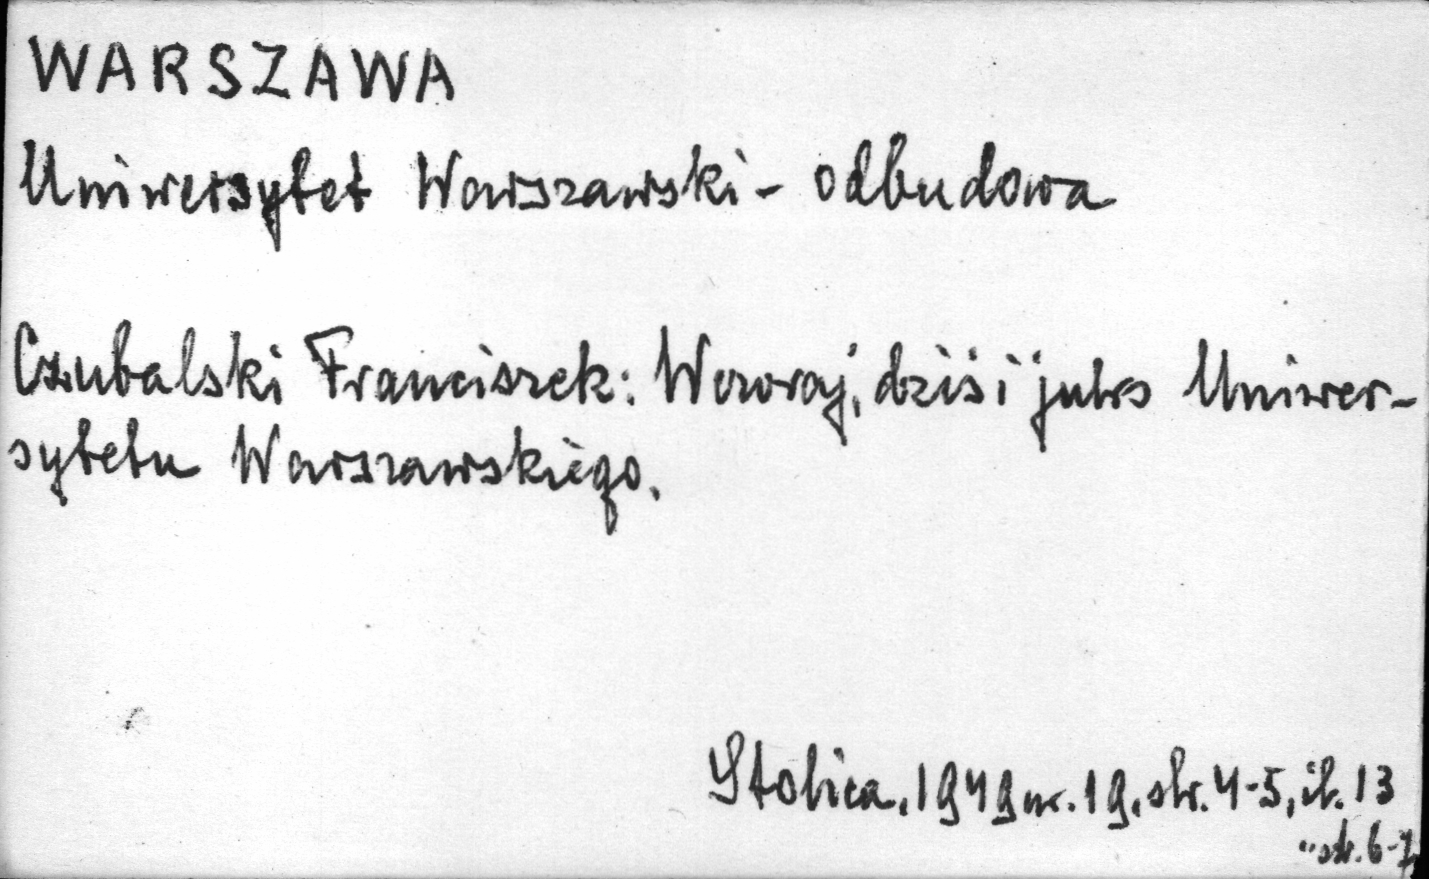 WARSZAWA
Uniwersytet Warszawski - odbudowa
Czubalski Franciszek: Wczoraj, dziś i jutro Uniwer-
sytetu Warszawskiego.
Stolica, 1949 nr. 19, str. 4-5, il. 13
" str. 6-7